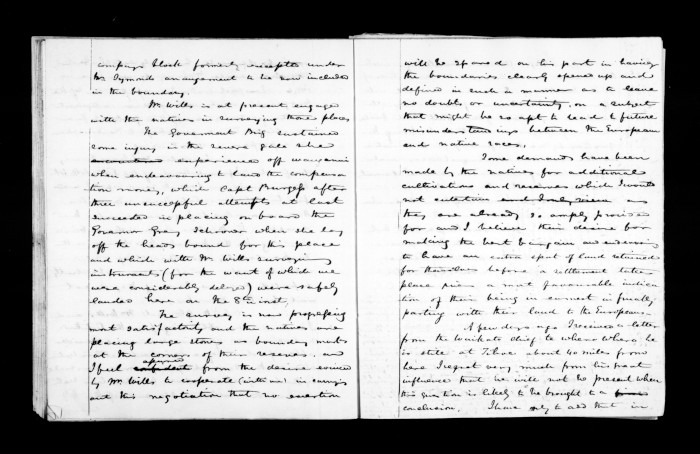 company's Block formerly excepted under
Mr Symonds arrangement to be now included
in the boundary.
Mr Wills is at present engaged
with the natives in surveying those places
The Government Brig sustained
some injury in the severe gale she
encountered experienced off
when endeavouring to land the compensa-
tion money, which Capt Burgess after
three unsuccessful attempts at last
succeeded in placing on board the
Governor Grey Schooner when she lay
off the heads bound for this place
and which with Mr Wills surveying
instruments (for the want of which we
were considerably delayed) were safely
landed here on the 8th inst,
The survey is now progressing
most satisfactorily and the natives are
placing large stones as boundary marks
at the corners of their reserves, and
I feel assured confident from the desire evinced
by Mr Wills to cooperate (with me) in carrying
out this negotiation that no exertion
will be spared on his part in having
the boundaries clearly opened up and
defined in such a manner as to leave
no doubt, or uncertainty, on a subject
that might be so apt to lead to future
misunderstandings between the European
and native races.
Some demands have been
made by the natives for additional
cultivations and reserves which I would
not entertain and as
they are already so amply provided
for and I believe their desire for
making the best bargain and
to have an extra spot of land retained
for themselves before a settlement takes
place is a most favourable indica-
tion of their being in earnest in finally
parting with their land to the Europeans.
A few days ago I received a letter
from the Waikato chief Te Wherowhero, he
is still at about 40 miles from
here I regret very much from his great
influence that he will not be present when
this question is likely to be brought to a
conclusion. I have only to add that in